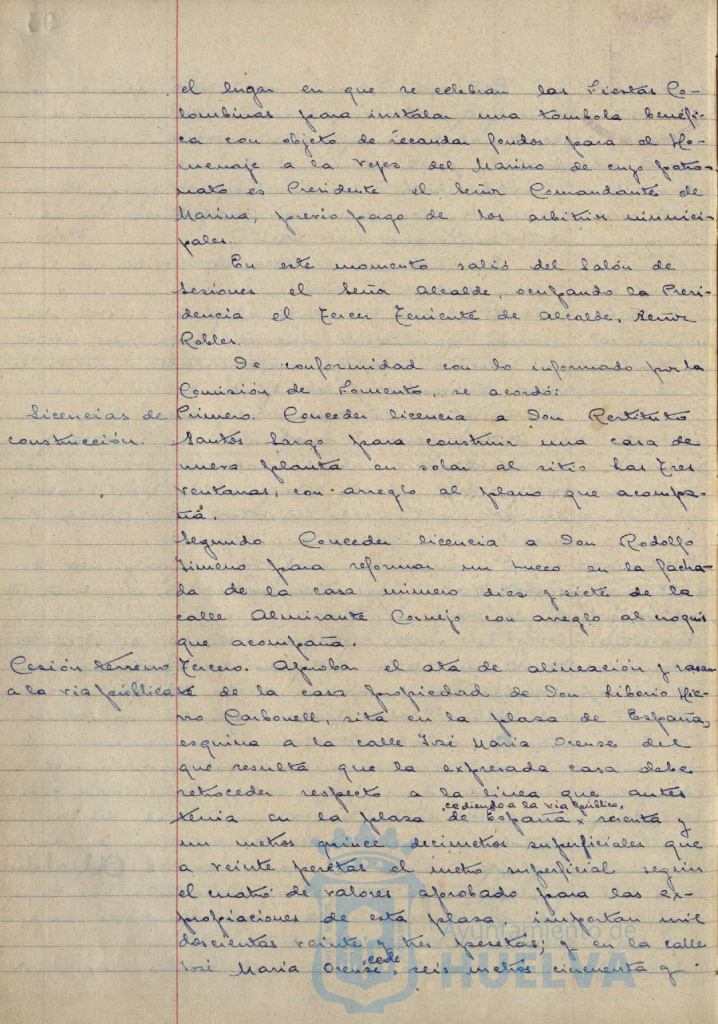 el lugar en que se celebran las Fiestas Co-
lombinas para instalar una tómbola benéfi-
ca con objeto de recaudar fondos para el Ho-
menaje a la Vejez del Marino de cuyo patro-
nato es Presidente el Señor Comandante de
Marina, previo pago de los arbitrios munici-
pales.
En este momento salió del Salón de
Sesiones el Señor Alcalde, ocupando la Presi-
dencia el Tercer Teniente de Alcalde, Señor
Robles.
De conformidad con lo informado por la
Comisión de Fomento, se acordó:
Licencias de
construcción.
Primero. Conceder licencia a Don Restituto
Santos Largo para construir una casa de
nueva planta en solar al sitio Las Tres
Ventanas, con arreglo al plano que acompa-
ña.
Segundo. Conceder licencia a Don Rodolfo
Jimeno para reformar un hueco en la facha-
da de la casa número diez y siete de la
calle Almirante Cornejo con arreglo al croquis
que acompaña.
Cesión terreno
a la vía pública
Tercero. Aprobar el ata de alineación y rasan
te de la casa propiedad de Don Liborio Hie-
rro Carbonell, sita en la plaza de España,
esquina a la calle José Maria Orense del
que resulta que la expresada casa debe
retroceder respecto a la linea que antes
cediendo a la vía pública,
tenia en la plaza de España, sesenta y
un metros quince decimetros superficiales que
a veinte pesetas el metro superficial según
el cuadro de valores aprobado para las ex-
propiaciones de esta plaza, importan mil
doscientas veinte y tres pesetas; y en la calle
cede
José Maria Orense, seis metros cincuenta y
Ayuntamiento de
HUELVA